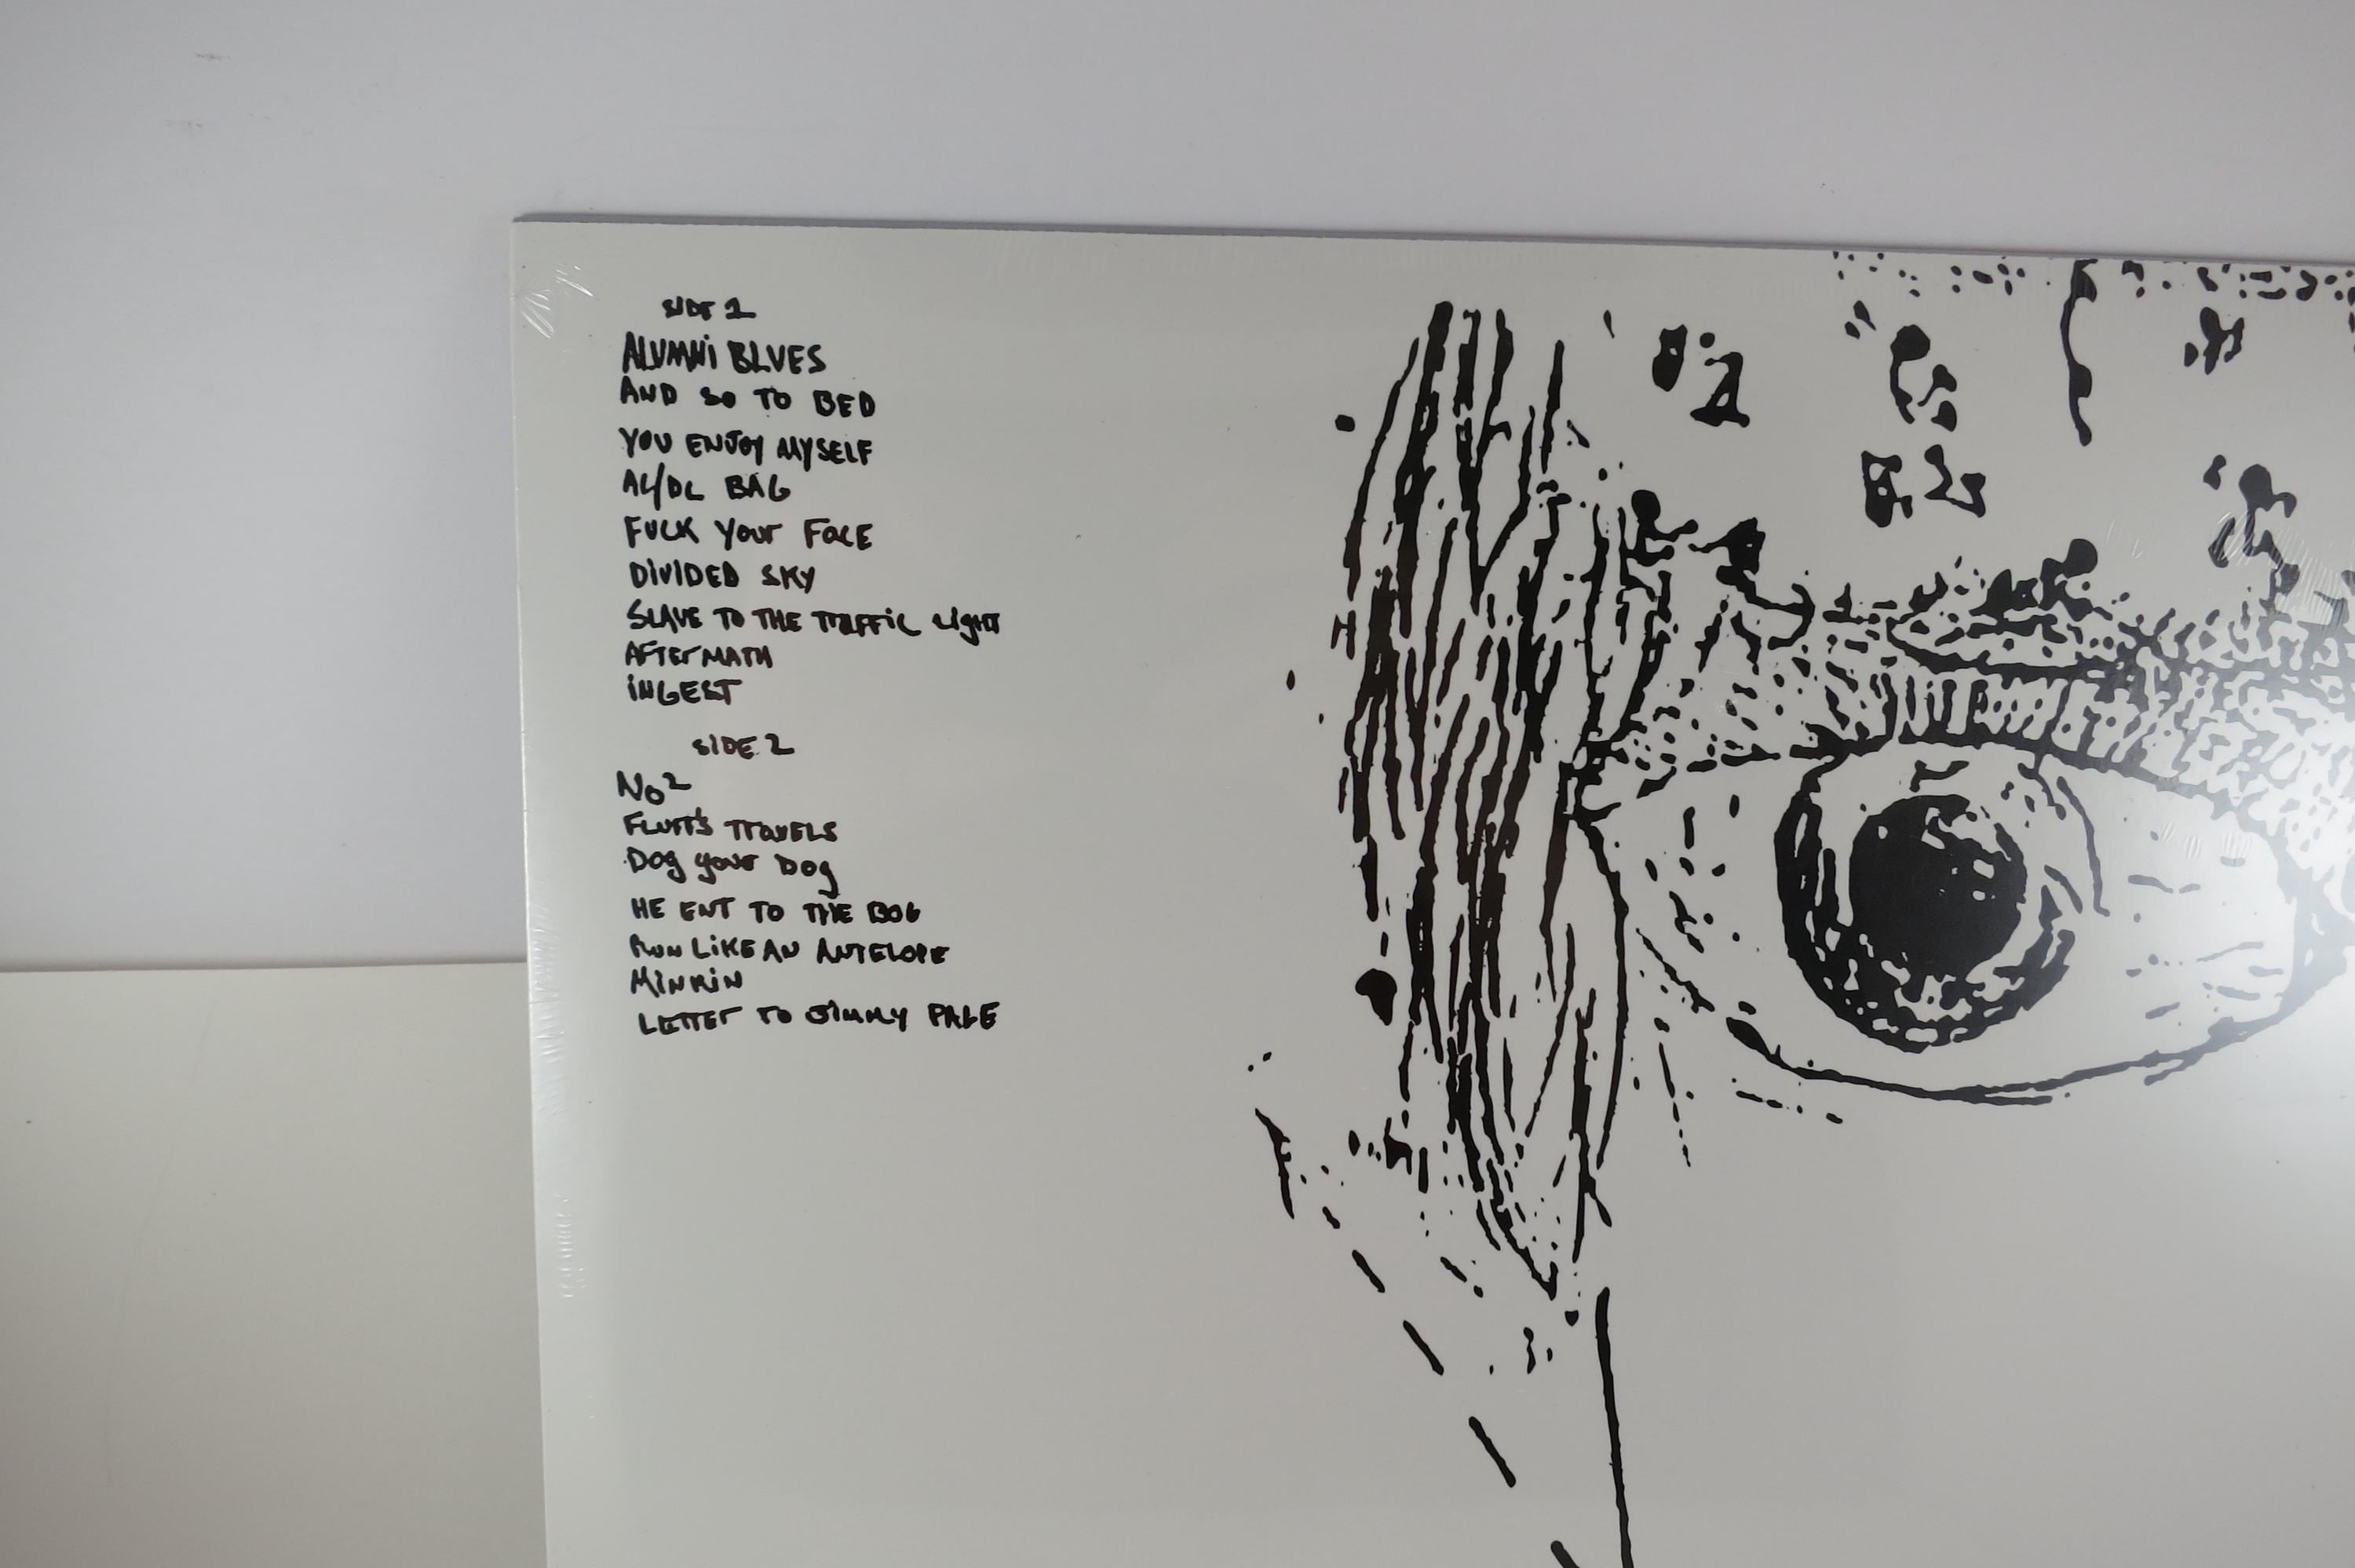 SIDE 1
ALUMNi BLUES
AND SO TO BED
YOU ENJOY MYSELF
AC/DC BAG
FUCK Your FACE
DiViDED SKY
SLAVE TO THE TrAFFiC Light
AFTErMATH
iNGEST
SIDE 2
NO²
FLUFF'S TrAVELS
Dog your Dog
HE ENT TO THE BOG
RUN LiKE AN ANTELOPE
MiNKiN
LETTEr TO JiMMY PAGE